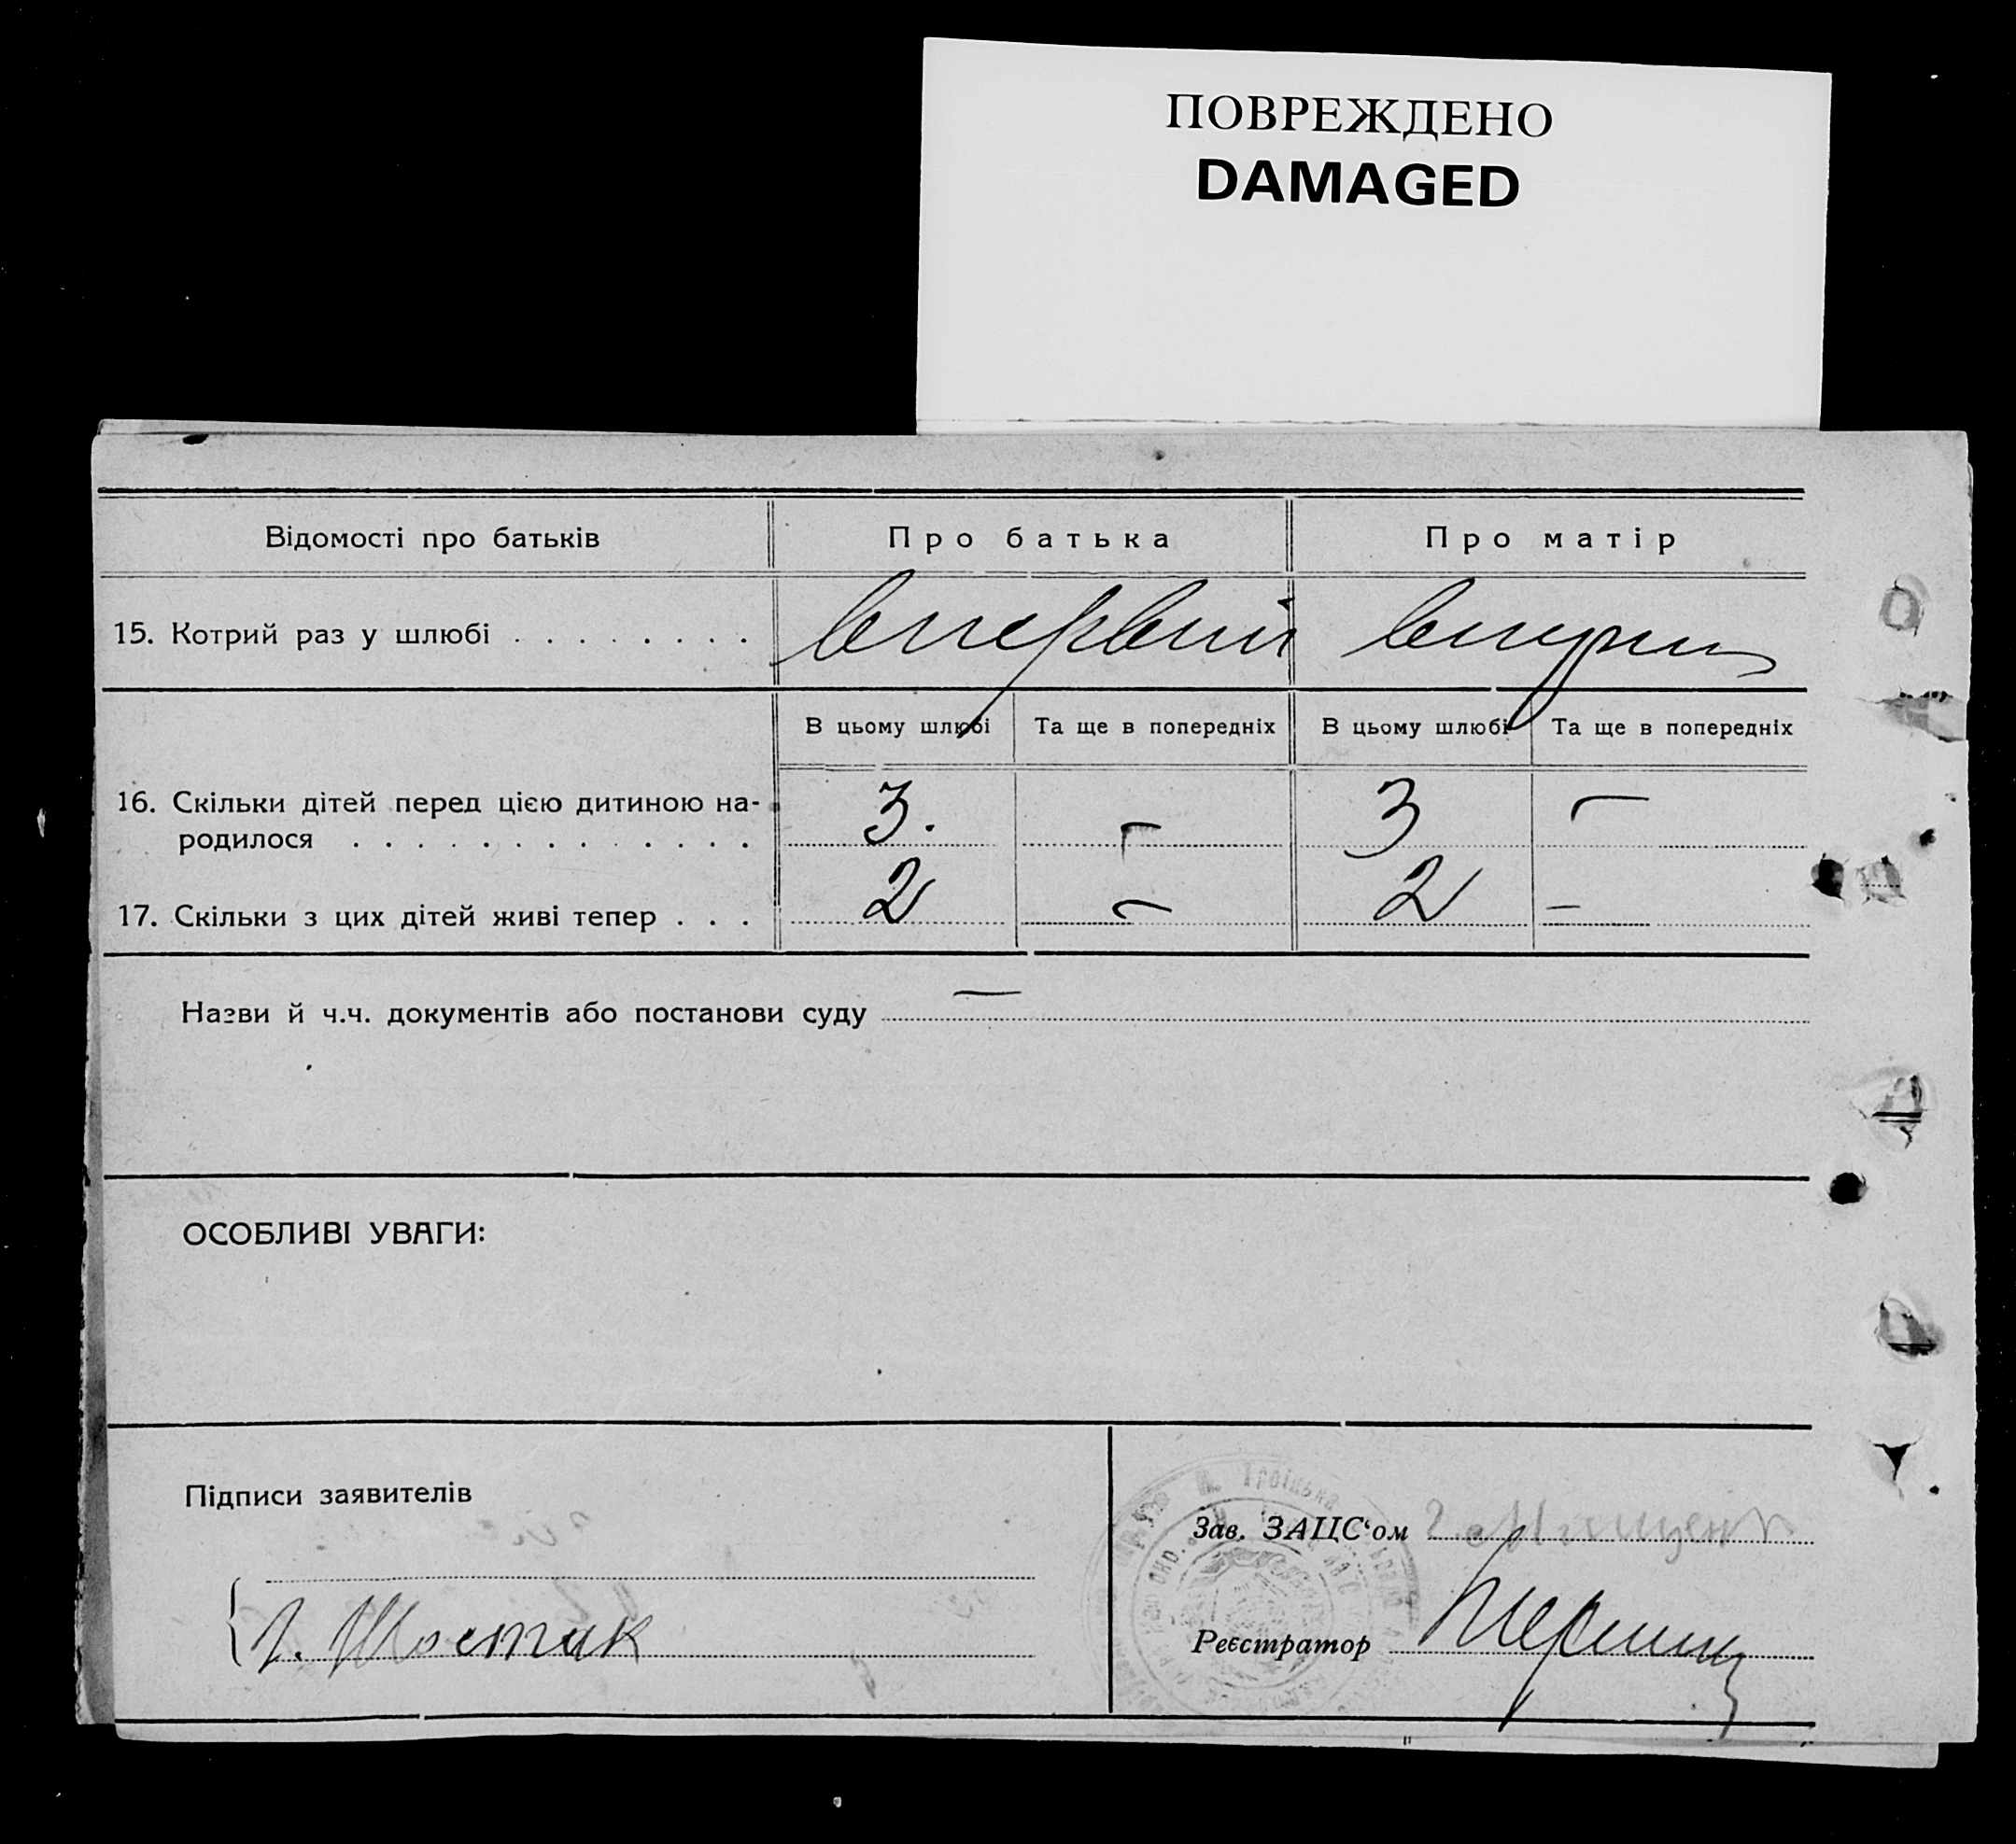 ПОВРЕЖДЕНО
DAMAGED
Відомості про батьків
Про батька
Про матір
15. Котрий раз у шлюбі . . . . . . . .
впервий
В цьому шлюбі
Та ще в попередніх
В цьому шлюбі
Та ще в попередніх
16. Скільки дітей перед цією дитиною на-
родилося . . . . . . . . . . . . .
3.
–
3
–
17. Скільки з цих дітей живі тепер . . .
2
–
2
–
Назви й ч.ч. документів або постанови суду
—
ОСОБЛИВІ УВАГИ:
Підписи заявителів
Г. Шостак
Троїцька
Зав. ЗАЦС‘ом
Реєстратор